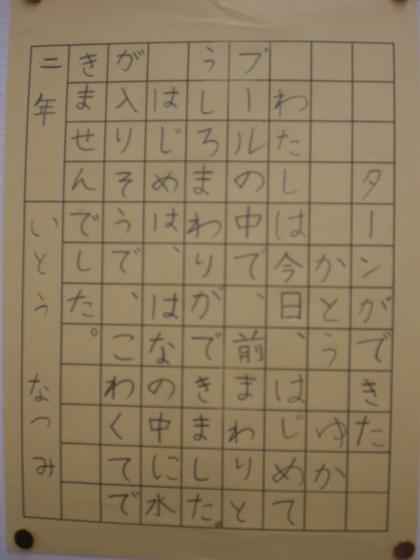 ターンができた
かとう ゆか
わたしは今日、はじめて
プールの中で、前まわりと
うしろまわりができました。
はじめは、はなの中に水
が入りそうで、こわくてで
きませんでした。
二年 いとう なつみ